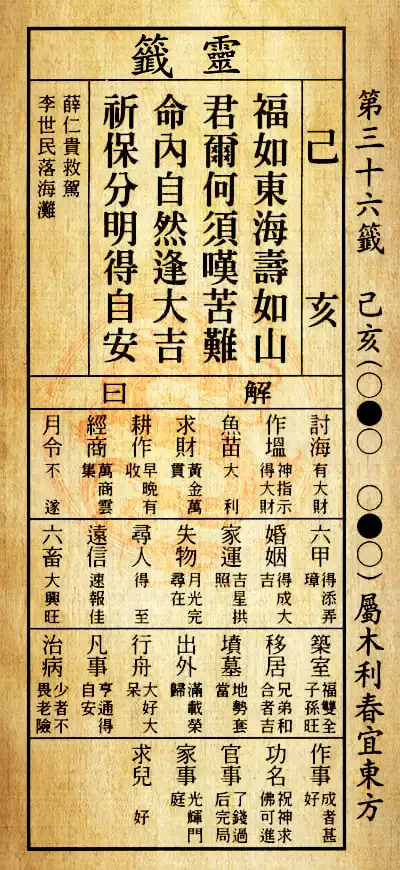 第三十六籤 己亥(○●○ ○●○)屬木利春宜東方
靈籤
己亥
福如東海壽如山
君爾何須嘆苦難
命內自然逢大吉
祈保分明得自安
薛仁貴救駕
李世民落海灘
解曰
討海 有大財
作塭 神指示得大財
魚苗 大利
求財 黃金萬貫
耕作 早晚有收
經商 萬商雲集
月令 不遂
六甲 得添弄璋
婚姻 得成大吉
家運 吉星拱照
失物 月光完尋在
尋人 得至
遠信 速報佳
六畜 大興旺
築室 福雙全子孫旺
移居 兄弟和合者吉
墳墓 地勢套當
出外 滿載榮歸
行舟 大好大呆
凡事 亨通得自安
治病 少者不畏老險
作事 成者甚好
功名 祝神求佛可進
官事 了錢過后完局
家事 光輝門庭
求兒 好